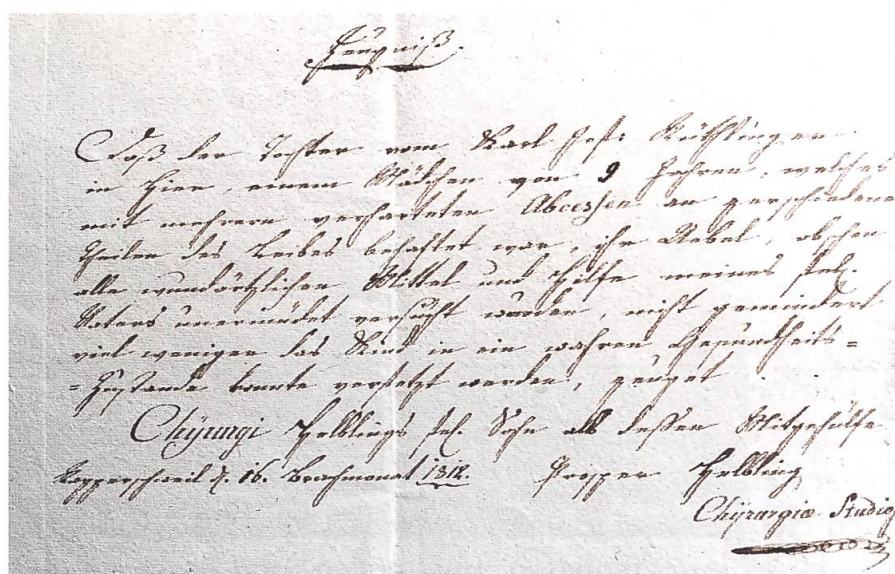 Zeugniß.
Daß der Tochter vom Karl Jos: 
in hier, einem Mädchen von 9 Jahren, welches
mit mehrern verharteten Abcessen an verschiedene
Theilen des Leibes behaftet war, ihr Uebel, obschon
alle wundärztlichen Mittel und Hilfe meines sel.
Vaters unermüdet versucht wurden, nicht gemindert
viel weniger das Kind in ein wahren Gesundheits=
=Zustande konnte versetzt werden, zeuget
Chyrurgi Helblings sel. Sohn als dessen Mitgehülfe
Rapperschweil d. 16. Brachmonat 1812. Prosper Helbling
Chyrurgiæ Studios